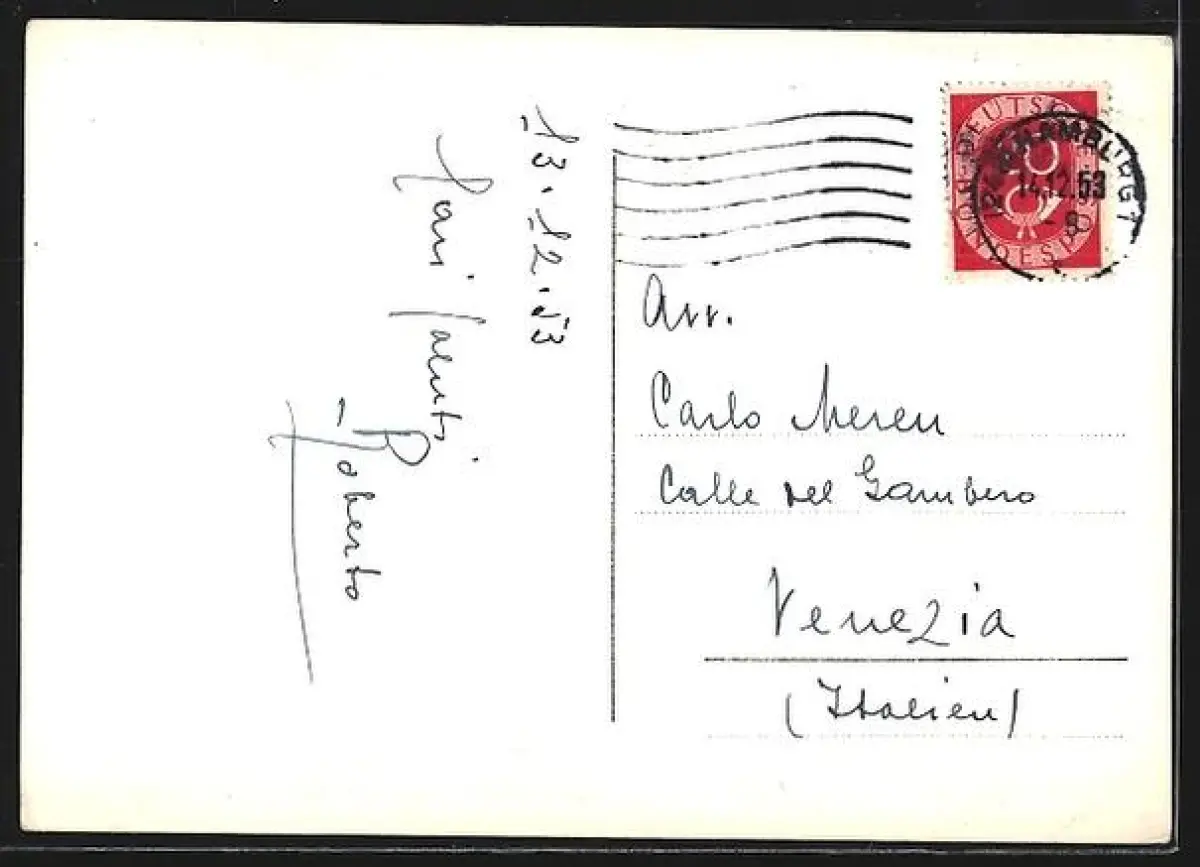 13.12.53
Cari saluti
- Roberto
DEUTSCHE
HAMBURG 1
14.12.53
- 8
Avv.
Carlo
Calle del Gambero
Venezia
(Italien)